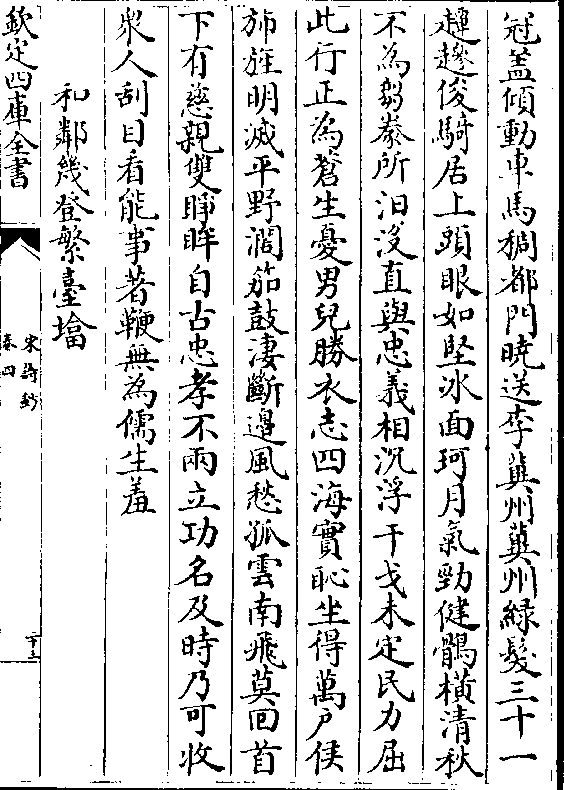 冠蓋傾動車馬稠都門曉送李冀州冀州緑髪三十一
趯趯俊騎居上頭眼如堅冰面珂月氣勁健鶻橫清秋
不為芻豢所汨沒直與忠義相沉浮干戈未定民力屈
此行正為蒼生憂男兒勝衣志四海實恥坐得萬户侯
斾旌明滅平野濶笳鼓淒斷邉風愁孤雲南飛莫回首
下有慈親雙睜眸自古忠孝不兩立功名及時乃可收
衆人刮目看能事著鞭無為儒生羞
和鄰幾登繁臺塔
欽定四庫全書
宋詩鈔
卷四